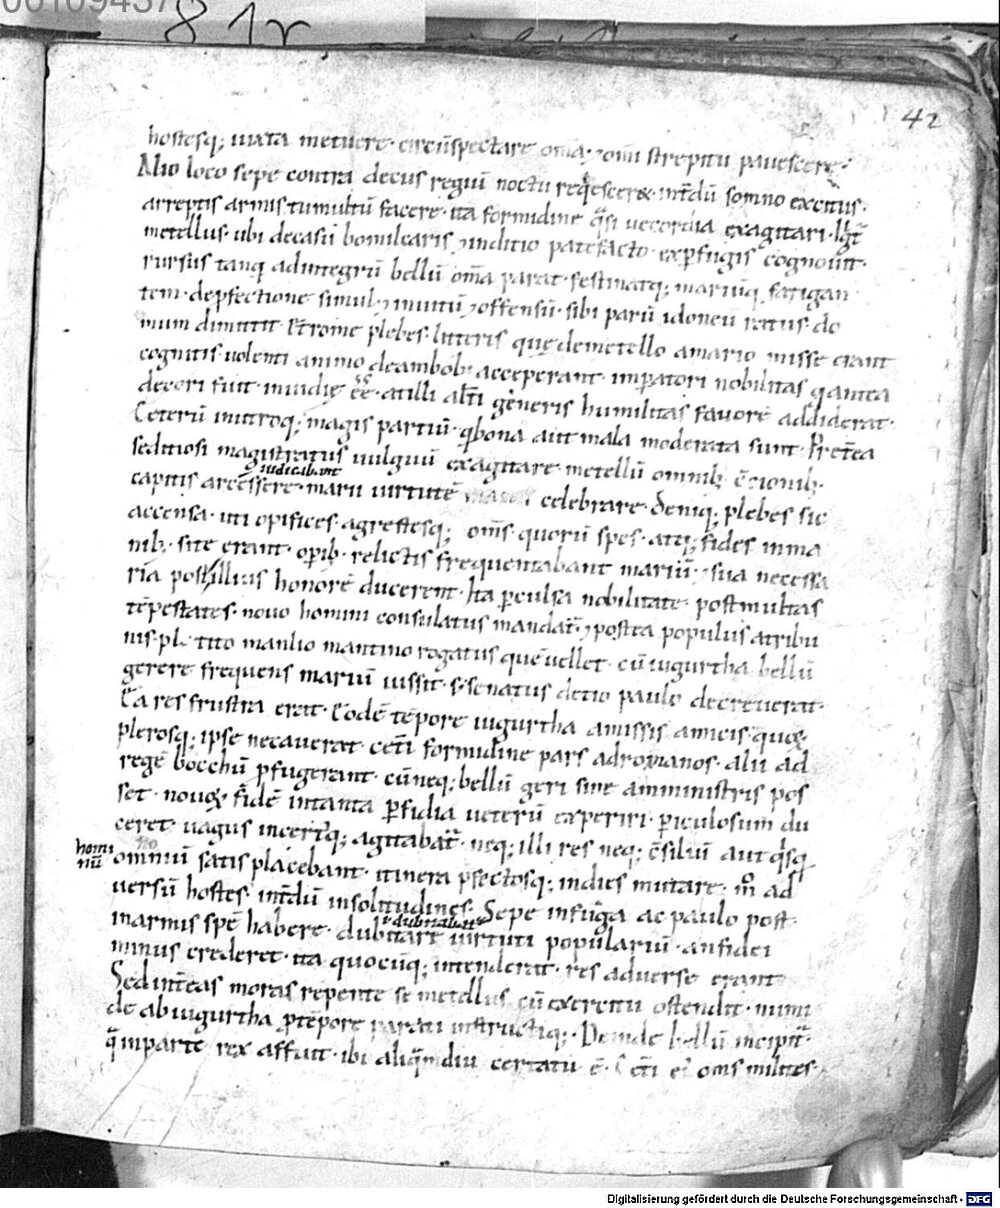 81r
42
hostesq; iuxta metuere. circu̅spectare om̅a. ⁊ om̅i strepitu pavescere.
Alio loco sepe contra decus regiu̅ noctu reqescere. int̅du̅ somno excitus.
arreptis armis tumultu̅ facere. ita formidine q̅si vecordia exagitari. Igit̅
metellus. ubi de casu bomilcaris ⁊ inditio patefacto. ex p̅fugis cognovit.
rursus tanq̅ ad integru̅ bellu̅ om̅a parat. festinatq; mariu̅q fatigan
tem. de p̅fectione simul. ⁊ invitu̅ ⁊ offensu̅. sibi paru̅ idoneu̅ ratus. do
mum dimittit. Et rome plebes. litteris que de metello a mario misse erant
cognitis. volenti animo de ambob; acceperant. imp̅atori nobilitas q̅ antea
decori fuit. invidie ee̅. at illi alt̅i generis humilitas favore̅ addiderat.
Ceteru̅ in utroq; magis partiu̅. q̅ bona aut mala moderata sunt. Pret̅ea
seditiosi magistratus vulgum exagitare. metellu̅ omnib; c̅cionib;
capitis arcessere. marii virtute̅ celebrare. Deniq; plebes sic
accensa. uti opifices. agrestesq; om̅s. quoru̅ spes. atq; fides in ma
nib; site erant. op̅ib. relictis frequentabant mariu̅. ⁊ sua necessa
ria post illius honore̅ ducerent. Ita p̅culsa nobilitate. post multas
te̅pestates. novo homini consulatus mandat̅. ⁊ postea populus a tribu
nis. pl. tito manlio mantino rogatus que̅ vellet. cu̅ iugurtha bellu̅
gerere frequens mariu̅ iussit. s; senatus detio paulo decreverat.
Ea res frustra erat. Eode̅ te̅pore iugurtha amissis amicis. quoꝝ
plerosq; ipse necaverat. cet̅i formidine pars ad romanos. alii ad
rege̅ bocchu̅ p̅fugerant. cu̅ neq; bellu̅ geri sine amministris pos
set. novoꝝ fide̅ in tanta p̅fidia veteru̅ experiri. p̅iculosum du
ceret. vagus incert̅q; agitabat̅. neq; illi res neq; c̅siliu̅ aut q̅sq̅
homi
nu̅
omniu̅ satis placebant. itinera p̅fectosq; in dies mutare. m̅ ad
versu̅ hostes. int̅du̅ in solitudines. Sepe in fuga ac paulo post
in armis spe̅ habere. dubitare virtuti populariu̅. an fidei
minus crederet. ita quocu̅q; intenderat. res adverse erant.
Sed int̅ eas moras repente se metellus cu̅ exercitu ostendit. numi
de ab iugurtha p̅ te̅pore parati instructiq;. Deinde bellu̅ incipit̅
q̅ in parte rex affuit. ibi aliq̅mdiu certatu̅ e̅. Cet̅i ei̅ om̅s milites.
Digitalisierung gefördert durch die Deutsche Forschungsgemeinschaft - DFG